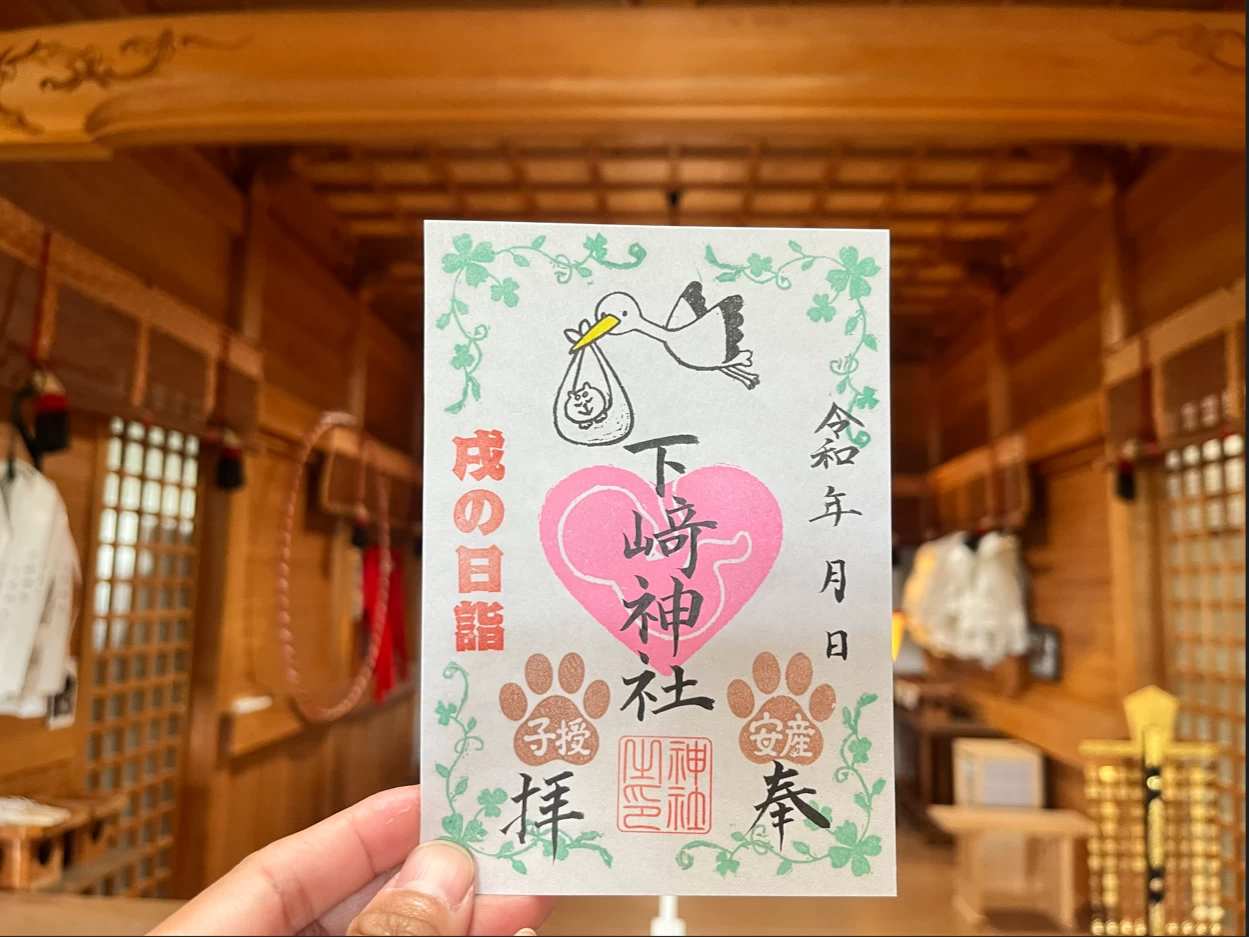 令和 年 月 日
奉
安産
下﨑神社
神社之印
子授
戌の日詣
拝